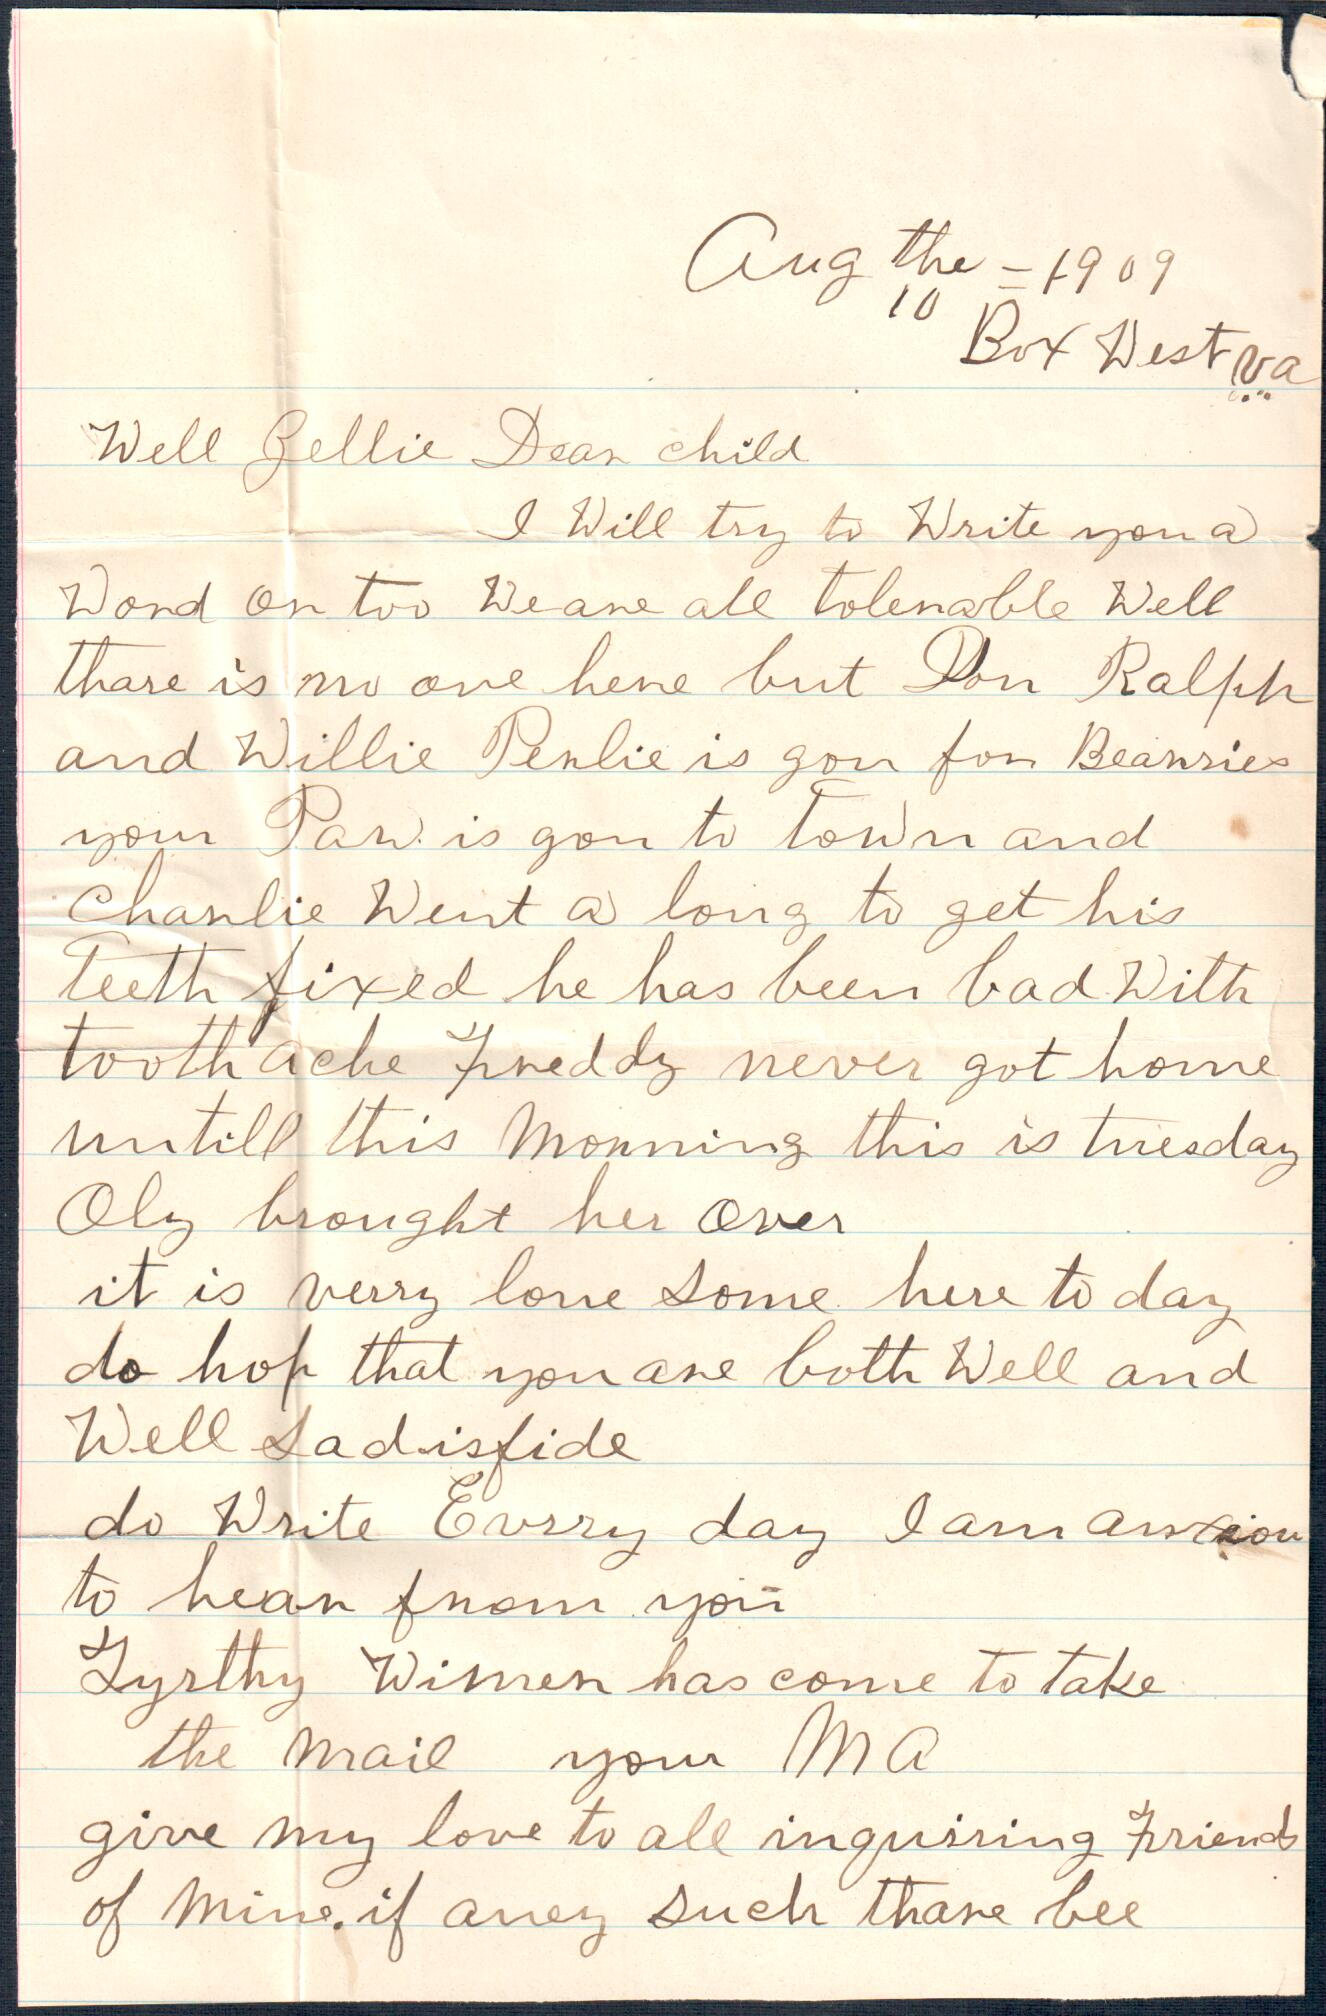 Aug the 10 = 1909
Box West va
Well Zellie Dear child
I Will try to Write you a
Word or too We are all tolerable Well
thare is no one here but Don Ralph
and Willie Perlie is gon for Bearries
your Paw is gon to town and
Charlie Went a long to get his
teeth fixed he has been bad With
tooth ache Freddy never got home
untill this Morning this is tuesday
Oly brought her over
it is verry lone some here to day
do hop that you are both Well and
Well Sadisfide
do Write Everry day I am anxiou
to hear from you
Wimer has come to take
the Mail your MA
give my love to all inquiring Friends
of Mine. if aney such thare bee